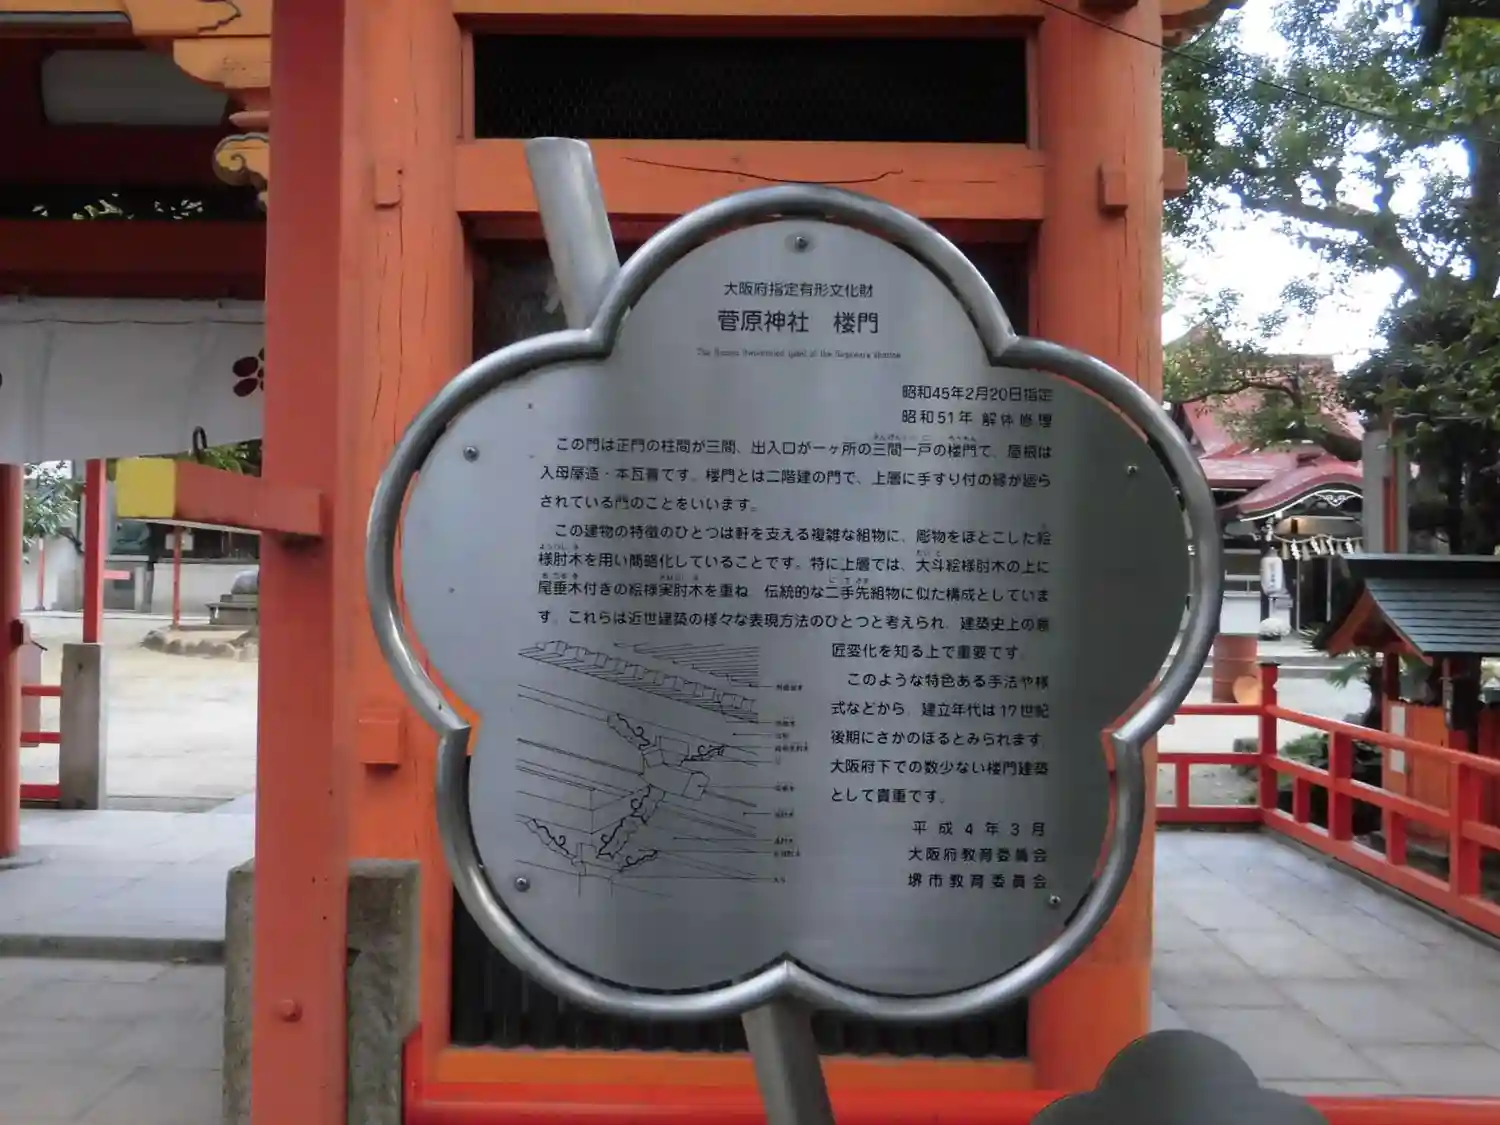 大阪府指定有形文化財
菅原神社 楼門
昭和45年2月20日指定
昭和51年 解体修理
この門は正門の柱間が三間、出入口が一ヶ所の三間一戸の楼門で、屋根は
入母屋造・本瓦葺です。楼門とは二階建の門で、上層に手すり付の縁が廻ら
されている門のことをいいます。
この建物の特徴のひとつは軒を支える複雑な組物に、彫物をほどこした絵
様肘木を用い簡略化していることです。特に上層では、大斗絵様肘木の上に
尾垂木付きの絵様実肘木を重ね、伝統的な二手先組物に似た構成としていま
す。これらは近世建築の様々な表現方法のひとつと考えられ、建築史上の意
匠変化を知る上で重要です。
このような特色ある手法や様
式などから、建立年代は17世紀
後期にさかのぼるとみられます。
大阪府下での数少ない楼門建築
として貴重です。
平成4年3月
大阪府教育委員会
堺市教育委員会